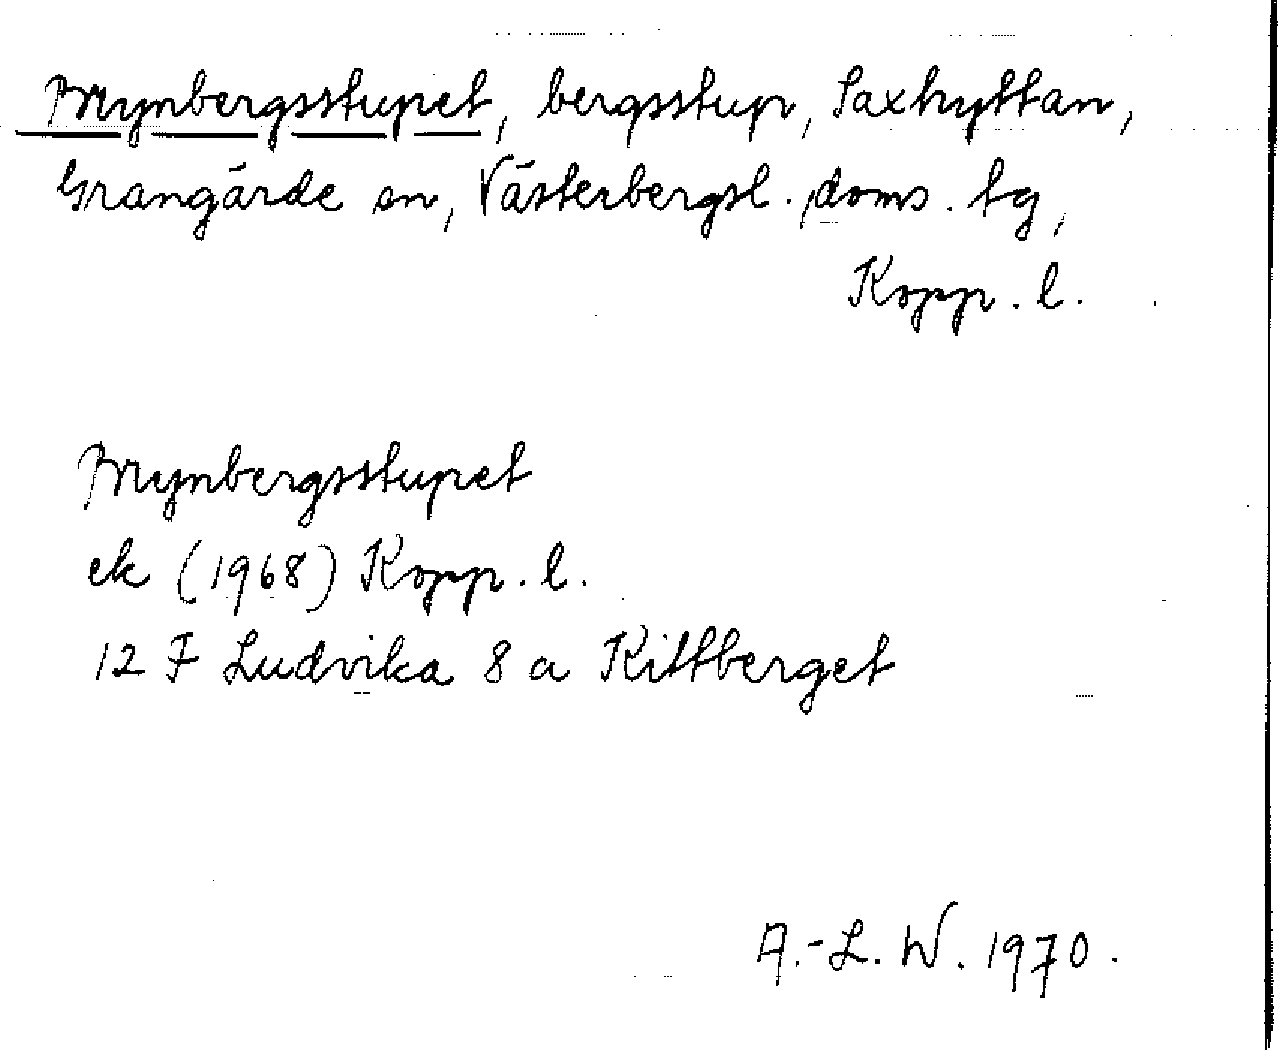 Mynbergsstupet, bergsstup, Saxhyttan,
Grangärde sn, Västerbergsl. doms. tg,
Kopp. l.
Mynbergsstupet
ek (1968) Kopp. l.
12 F Ludvika 8 a Kittberget
A.-L. W. 1970.